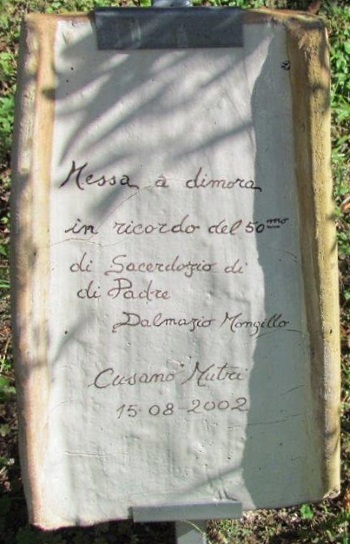 Messa a dimora
in ricordo del 50mo
di Sacerdozio di
di Padre
Dalmazio Mongillo
Cusano Mutri
15-08-2002